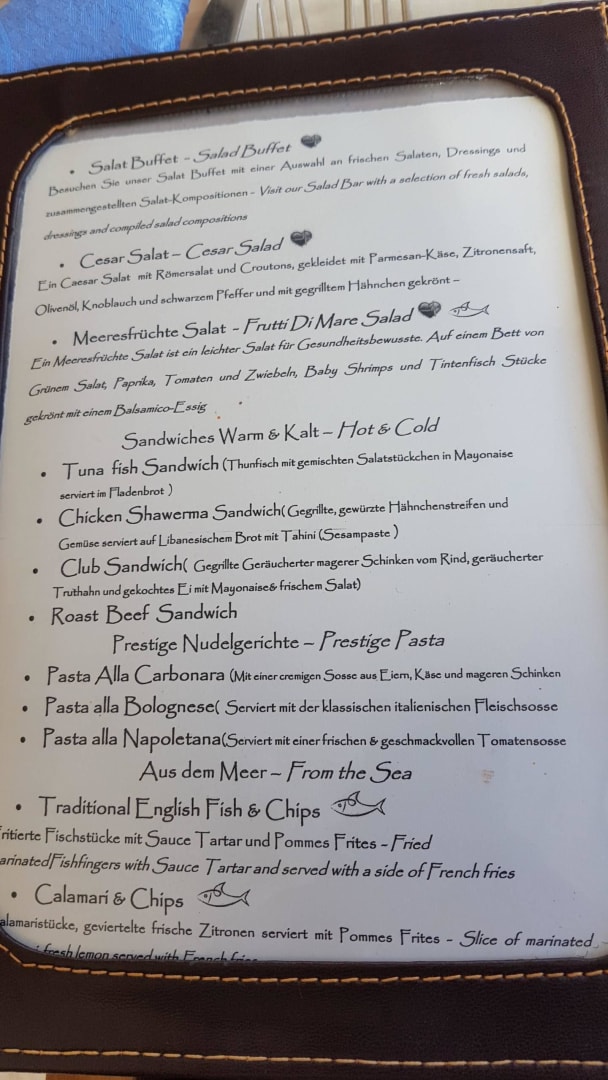 • Salat Buffet - Salad Buffet
Besuchen Sie unser Salat Buffet mit einer Auswahl an frischen Salaten, Dressings und
zusammengestellten Salat-Kompositionen - Visit our Salad Bar with a selection of fresh salads,
dressings and compiled salad compositions
• Cesar Salat – Cesar Salad
Ein Caesar Salat mit Römersalat und Croutons, gekleidet mit Parmesan-Käse, Zitronensaft,
Olivenöl, Knoblauch und schwarzem Pfeffer und mit gegrilltem Hähnchen gekrönt –
• Meeresfrüchte Salat - Frutti Di Mare Salad
Ein Meeresfrüchte Salat ist ein leichter Salat für Gesundheitsbewusste. Auf einem Bett von
Grünem Salat, Paprika, Tomaten und Zwiebeln, Baby Shrimps und Tintenfisch Stücke
gekrönt mit einem Balsamico-Essig
Sandwiches Warm & Kalt – Hot & Cold
• Tuna fish Sandwich (Thunfisch mit gemischten Salatstückchen in Mayonaise
serviert im Fladenbrot )
• Chicken Shawerma Sandwich( Gegrillte, gewürzte Hähnchenstreifen und
Gemüse serviert auf Libanesischem Brot mit Tahini (Sesampaste )
• Club Sandwich( Gegrillte Geräucherter magerer Schinken vom Rind, geräucherter
Truthahn und gekochtes Ei mit Mayonaise& frischem Salat)
• Roast Beef Sandwich
Prestige Nudelgerichte – Prestige Pasta
• Pasta Alla Carbonara (Mit einer cremigen Sosse aus Eiern, Käse und mageren Schinken
• Pasta alla Bolognese( Serviert mit der klassischen italienischen Fleischsosse
• Pasta alla Napoletana(Serviert mit einer frischen & geschmackvollen Tomatensosse
Aus dem Meer – From the Sea
• Traditional English Fish & Chips
ritierte Fischstücke mit Sauce Tartar und Pommes Frites - Fried
arinated Fishfingers with Sauce Tartar and served with a side of French fries
• Calamari & Chips
alamaristücke, geviertelte frische Zitronen serviert mit Pommes Frites - Slice of marinated
fresh lemon served with French fries